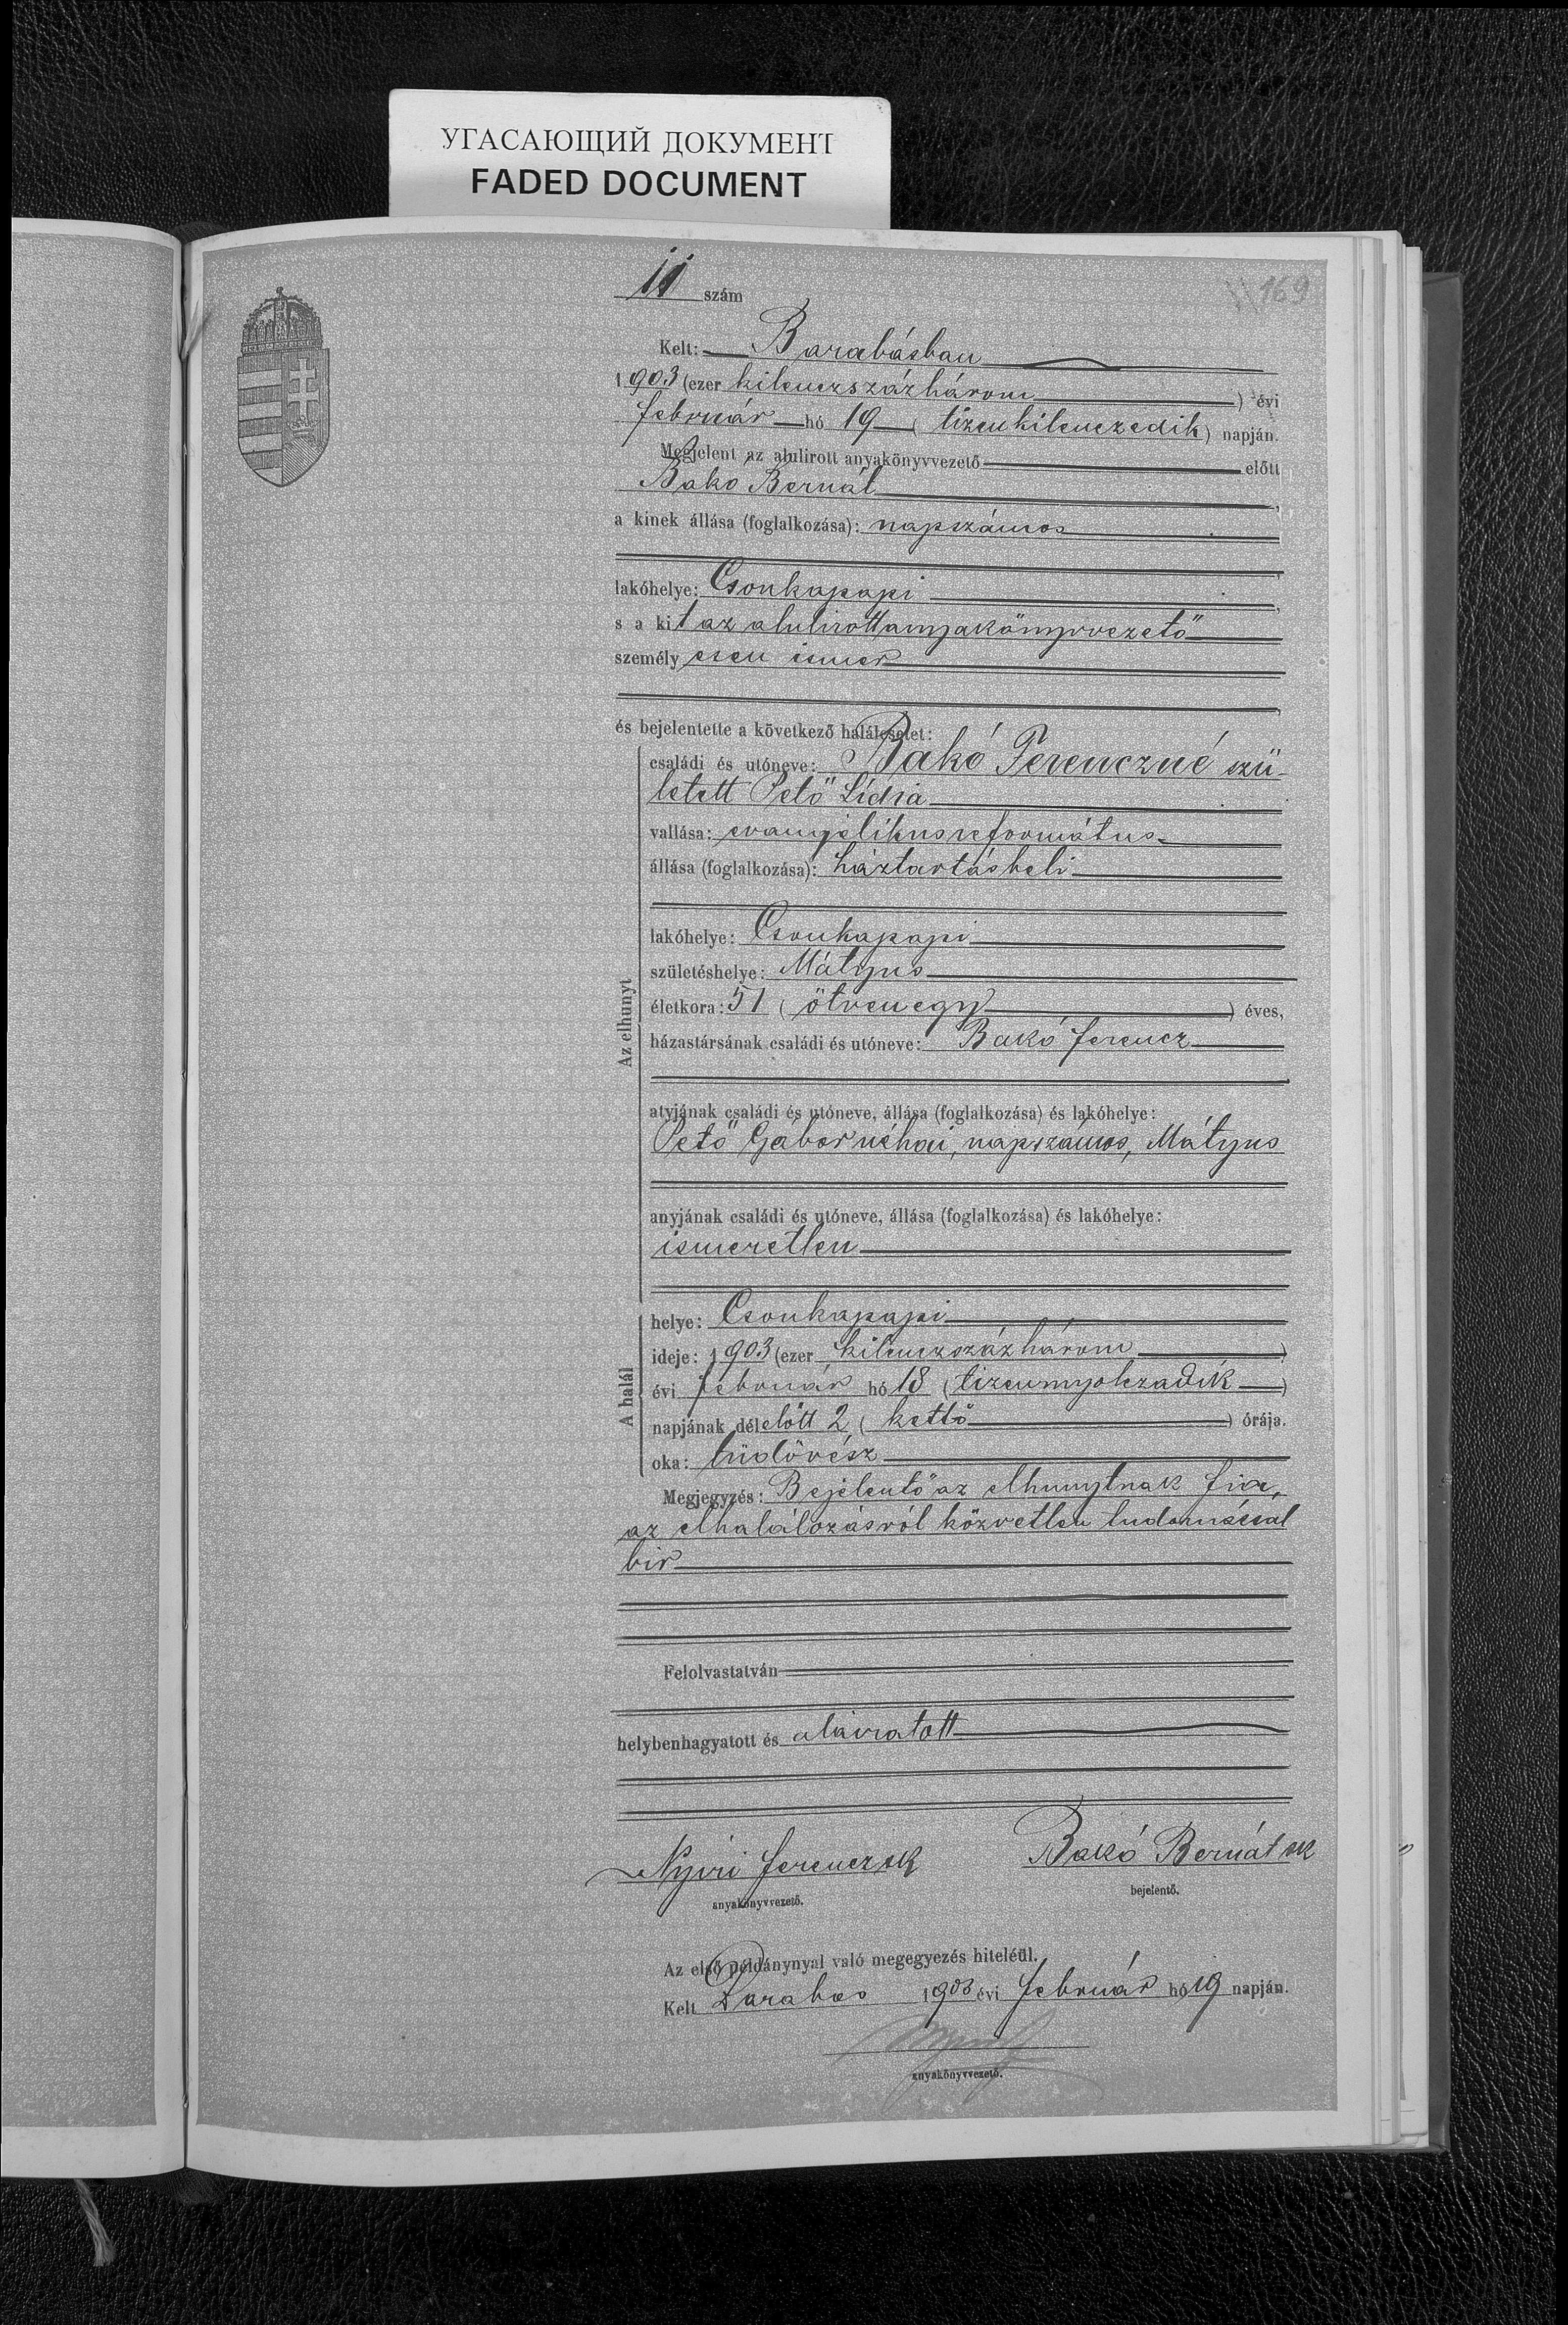 УГАСАЮЩИЙ ДОКУМЕНТ
FADED DOCUMENT
169
11 szám
Kelt: Barabásban
1903 (ezer kilenczszázhárom) évi
február hó 19 (tizenkilenczedik) napján.
Megjelent az alulirott anyakönyvvezető előtt
Bako Bernát,
a kinek állása (foglalkozása): napszámos
lakóhelye: Csonkapapi,
s a kit az alulirott anyakönyvvezető
személyesen ismer
és bejelentette a következő halálesetet:
Az elhunyt
családi és utóneve: Bakó Ferenczné szü-
letett Pető Lídia
vallása: evangélikus református
állása (foglalkozása): háztartásbeli
lakóhelye: Csonkapapi
születéshelye: Mátyus
életkora: 51 (ötvenegy) éves,
házastársának családi és utóneve: Bakó Ferencz
atyjának családi és utóneve, állása (foglalkozása) és lakóhelye:
Pető Gábor néhai, napszámos, Mátyus
anyjának családi és utóneve, állása (foglalkozása) és lakóhelye:
ismeretlen
A halál
helye: Csonkapapi
ideje: 1903 (ezer kilenczszázhárom)
évi február hó 18 (tizennyolczadik)
napjának délelőtt 2 (kettő) órája.
oka: tüdővész
Megjegyzés: Bejelentő az elhunytnak fia,
az elhalálozásról közvetlen tudomással
bir
Felolvastatván
helybenhagyatott és aláiratott
Nyiri Ferencz sk Bakó Bernát sk
anyakönyvvezető. bejelentő.
Az első példánynyal való megegyezés hiteléül.
Kelt Barabas 1903 évi február hó 19 napján.
anyakönyvvezető.